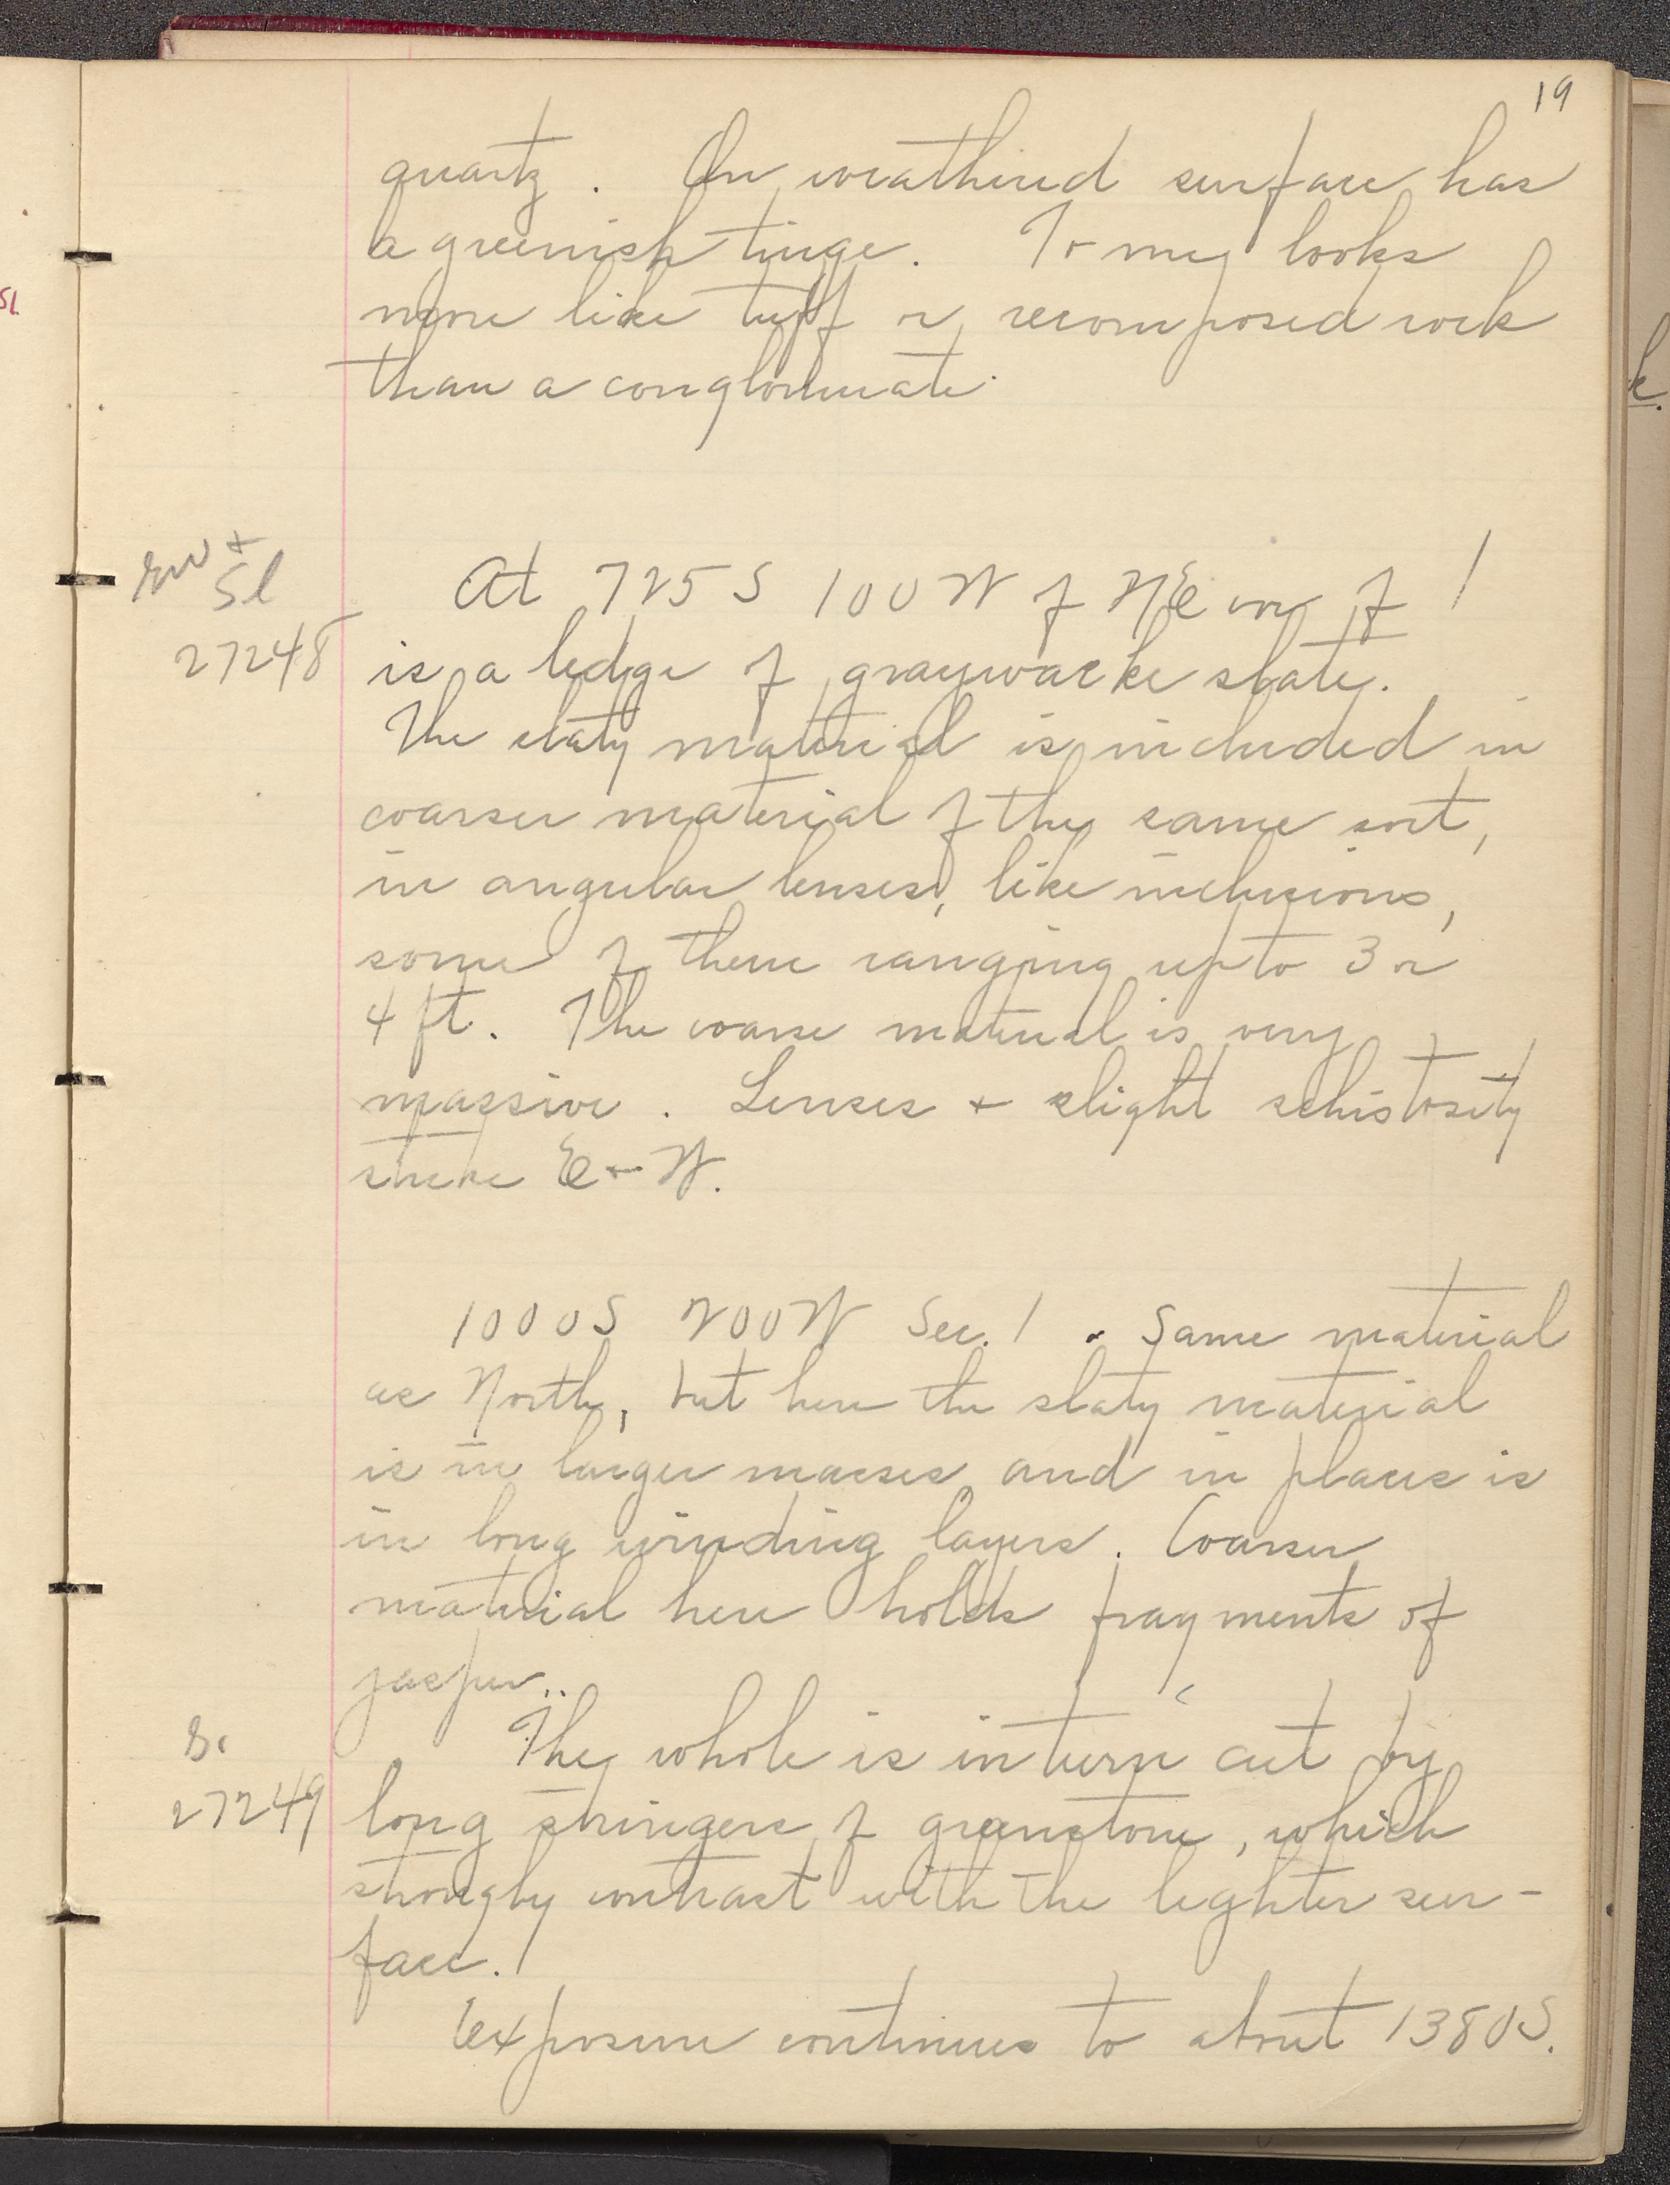 19
quartz. On weathered surface has
a greenish tinge. To me looks
more like tuff or recomposed rock
than a conglomerate.
gw +
Sl
27248
At 725 S 100 W of NE cor of 1
is a ledge of graywacke slate.
The slaty material is included in
coarser material of the same sort,
in angular lenses, like inclusions,
some of them ranging up to 3 or
4 ft. The coarse material is very
massive. Lenses + slight schistosity
strike E + W.
1000 S 200 W Sec. 1. Same material
as North, but here the slaty material
is in larger masses and in places is
in long winding layers. Coarser
material here holds fragments of
jasper..
27249
The whole is in turn cut by
long stringers of greenstone, which
strongly contrast with the lighter sur-
face.
Exposure continues to about 1380 S.
Sl
k.